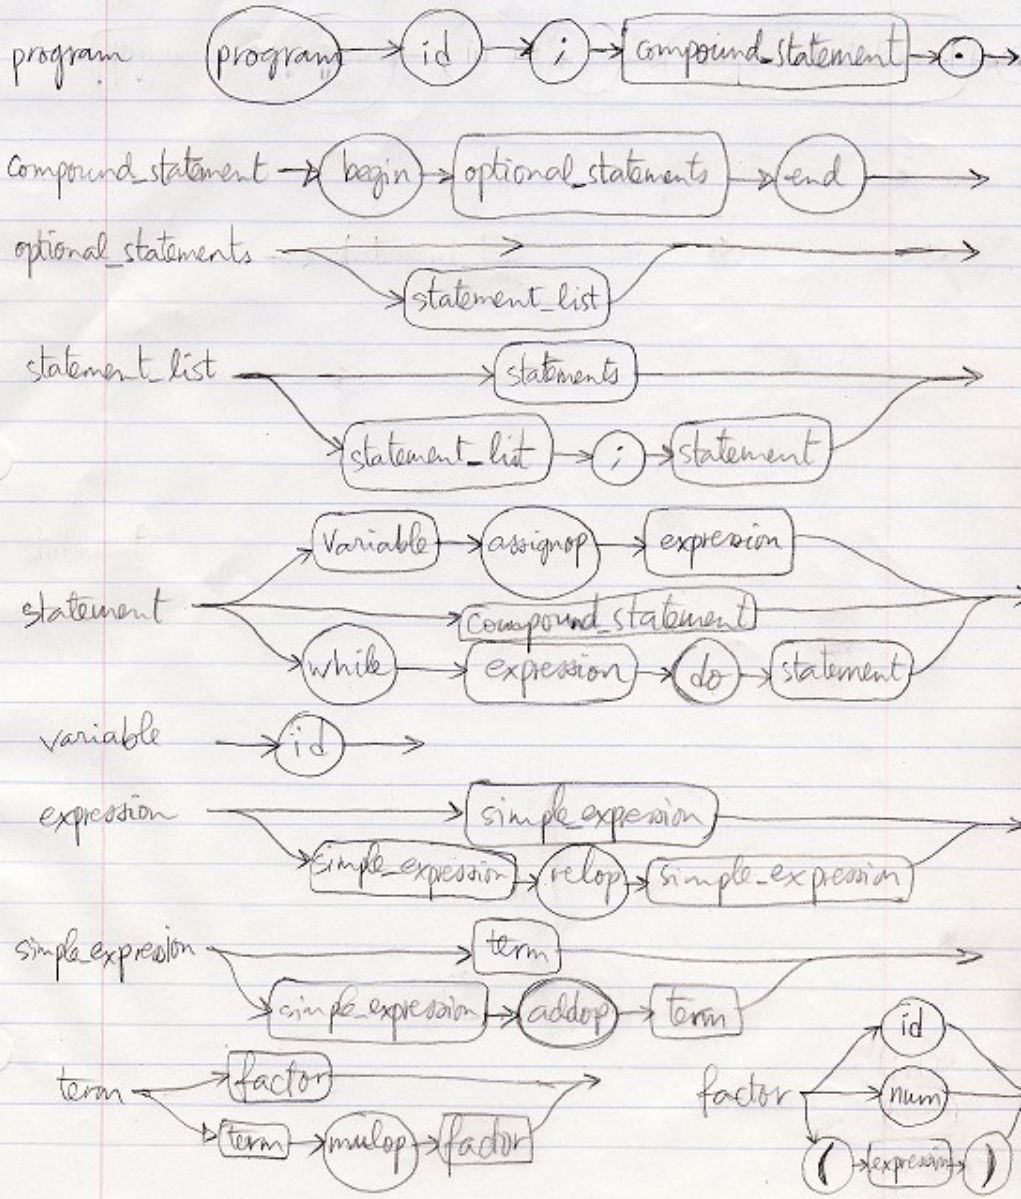 program program id ; compound_statement .
compound_statement begin optional_statements end
optional_statements
statement_list
statement_list statements
statement_list ; statement
variable assignop expression
statement compound_statement
while expression do statement
variable id
expression simple_expression
simple_expression relop simple_expression
simple_expression term
simple_expression addop term
id
term factor factor num
term mulop factor ( expression )